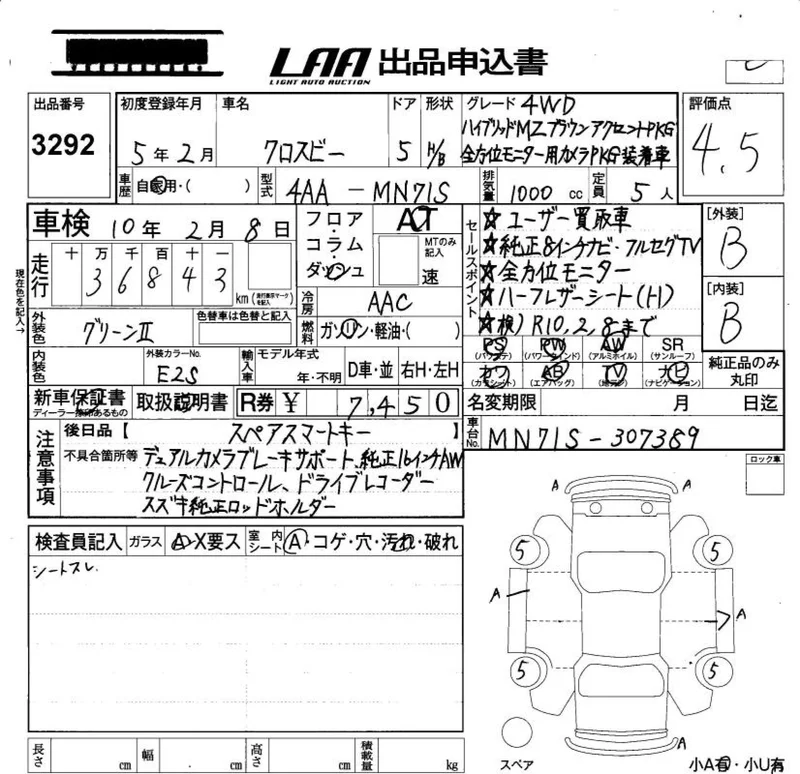 LAA 出品申込書
LIGHT AUTO AUCTION
出品番号 3292
初度登録年月 5年2月
車名 クロスビー
ドア 5
形状 H/B
グレード 4WD
ハイブリッドMZブラウンアクセントPKG
全方位モニター用カメラPKG装着車
評価点 4.5
車歴 自家用・( )
型式 4AA-MN71S
排気量 1000 cc
定員 5人
車検 10年2月8日
フロア・コラム・ダッシュ
ACT
MTのみ記入 速
セールスポイント
☆ユーザー買取車
☆純正8インチナビ・フルセグTV
☆全方位モニター
☆ハーフレザーシート(H)
☆検)R10,2,8まで
[外装] B
[内装] B
現在色を記入→
走行 十万千百十一
3 6 8 4 3 km
(走行表示マークを記入)
冷房 AAC
燃料 ガソリン・軽油・( )
外装色 グリーンII
色替車は色替と記入
内装色
外装カラーNo. E2S
輸入車 モデル年式 年・不明
D車・並 右H・左H
PS (パワステ) PW (パワーウインド) AW (アルミホイル) SR (サンルーフ)
カワ (カワシート) AB (エアバッグ) TV (地デジ) ナビ (ナビゲーション)
純正品のみ丸印
新車保証書
ディーラー捺印あるもの
取扱説明書
R券 ¥ 7,450
名変期限 月 日迄
車台No. MN71S-307389
注意事項
後日品【 スペアスマートキー 】
不具合箇所等 デュアルカメラブレーキサポート、純正16インチAW
クルーズコントロール、ドライブレコーダー
スズキ純正ロッドホルダー
ロック車
検査員記入
ガラス A・X要ス
室内シート A・コゲ・穴・汚れ・破れ
シートスレ
A A
5 5
A A
5 5
A
スペア
小A有・小U有
長さ cm 幅 cm 高さ cm 積載量 kg